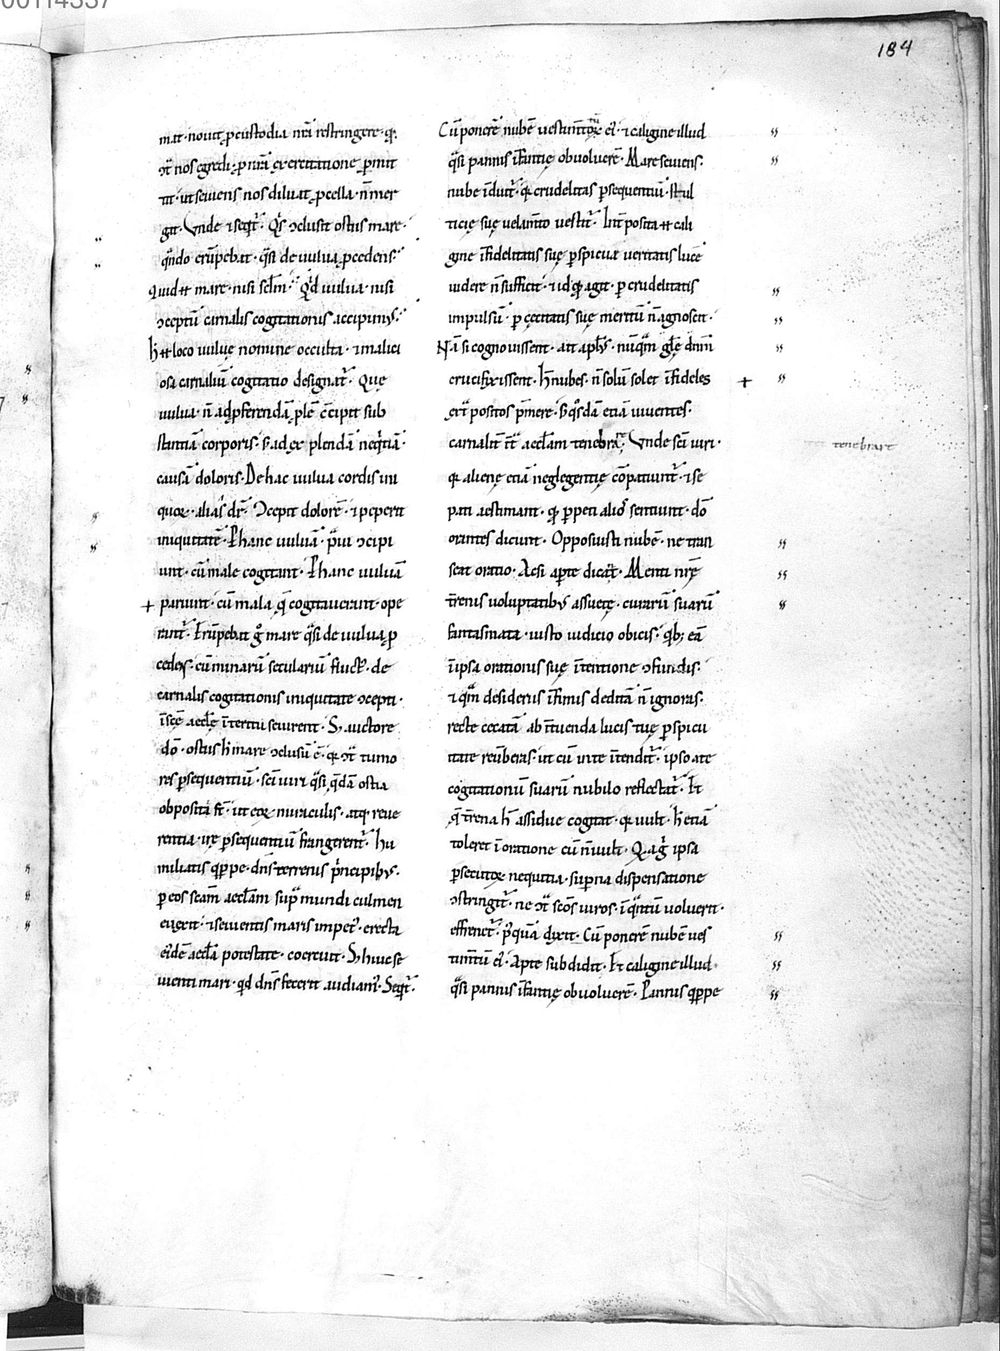 184
mat · nouit ꝓ custodia nr̄a restringere · q̨
ꝯͭ nos egredi · ꝓ nr̄a exercitatione ꝑmit
tit · ut seuiens nos diluat ꝓcella · n̄ mer
git · Vnde ⁊ seqͭ · Qͥs ꝯclusit ostiis mare ·
qn̄do erūpebat · qͣsi de uulua ꝓcedens ·
Quid ⁊ mare · nisi sc̄lm · Qͥd uulua · nisi
ꝯceptū carnalis cogitationis accipimꝰ ·
h̄ loco uuluę nomine occulta · ⁊ malici
osa carnaliū cogitatio designat᷑ · Quę
uulua · n̄ ad ꝓferendā ꝓlē ꝯcipit sub
stantiā corporis · s; ad explendā neqͥtiā ·
causā doloris · De hac uulua cordis ini
quoꝝ · alias dr̄ · Ꝯcepit dolorē · ⁊ peperit
iniquitatē · Ꝑ hanc uuluā · praui ꝯcipi
unt · cū male cogitant · Ꝑ hanc uuluā
+ pariunt · cū mala q̄ cogitauerant · ope
rant᷑ · Erūpebat gͦ mare qͣsi de uulua ꝓ
cedens · cū minarū seculariū fluctꝰ · de
carnalis cogitationis iniquitate ꝯcepti ·
ī sc̄ę aecl̄ę īteritū seuirent · S; auctore
dō · ostiis h̄ mare ꝯclusū ē · q̨ ꝯͭ tumo
res ꝑsequentiū · sc̄i uiri qͣsi qͥdā ostia
obpositi st̄ · ut eoꝝ miraculis · atq; reue
rentia · irę ꝑsequentiū frangerent᷑ · Hu
miliatis qͥppe · dn̄s terrenis pͥncipibꝰ ·
ꝑ eos sc̄am aecl̄am supͣ mundi culmen
euexit · ⁊ seuientis maris impetꝰ · erecta
eiꝰdē aecl̄a potestate · coercuit · S; huic se
uienti mari · qd dn̄s fecerit audiamꝰ · Seqͭ ·
Cū ponerē nubē uestimtū eiꝰ · ⁊ caligine illud
qͣsi pannis īfantię obuoluerē · Mare seuiens ·
nube īduit᷑ · q̨ crudelitas ꝑsequentiū · stul
ticię suę uelamto uestit᷑ · Int̄posita ⁊ cali
gine īfidelitatis suę ꝑspicuā ueritatis lucē
uidere n̄ sufficit · ⁊ id qd agit · ꝑ crudelitatis
impulsū · ꝑ cęcitatis suę meritū n̄ agnoscit ·
Nā si cognouissent · ait apl̄s · nūqͣm gl̄ę dn̄m
crucifixissent · H̄ nubes · n̄ solū solet īfideles
extͣ positos pͥmere · s; qͦsdā etiā uiuentes ·
carnalit᷑ intͣ aecl̄am tenebrare · Vnde sc̄i uiri ·
tenebrare
q̨ alienę etiā neglegentię cōpatiunt᷑ · ⁊ se
pati aestimant · qd ꝑpeti alios sentiunt · dō
orantes dicunt · Opposuisti nubē · ne tran
seat oratio · Ac si aꝑte dicat · Menti nrę̄
t̄renis uoluptatibꝰ assuetę · curarū suarū
fantasmata · iusto iudicio obicis · qͥb; eā
ī ipsa orationis suę ītentione ꝯfundis ·
⁊ qm̄ desideriis īfimis deditā n̄ ignoras ·
recte cecatā ab ītuenda lucis tuę ꝑspicu
itate reūberas · ut cū in te ītendit᷑ · ipso a te
cogitationū suarū nubilo reflectat᷑ · Et
q̄ t̄rena h̄ assidue cogitat · q̨ uult · h̄ etiā
toleret ī oratione cū n̄ uult · Q̨a gͦ ipsa
ꝑsecutoꝝ nequitia · suꝑna dispensatione
ꝯstringit᷑ · ne ꝯͭ sc̄os uiros · ī qͣntū voluerit ·
effrenet᷑ · pͦsquā dixit · Cū ponerē nubē ues
timtū eiꝰ · Apte subdidit · Et caligine illud ·
qͣsi pannis īfantię obuoluerē · Pannis qͥppe